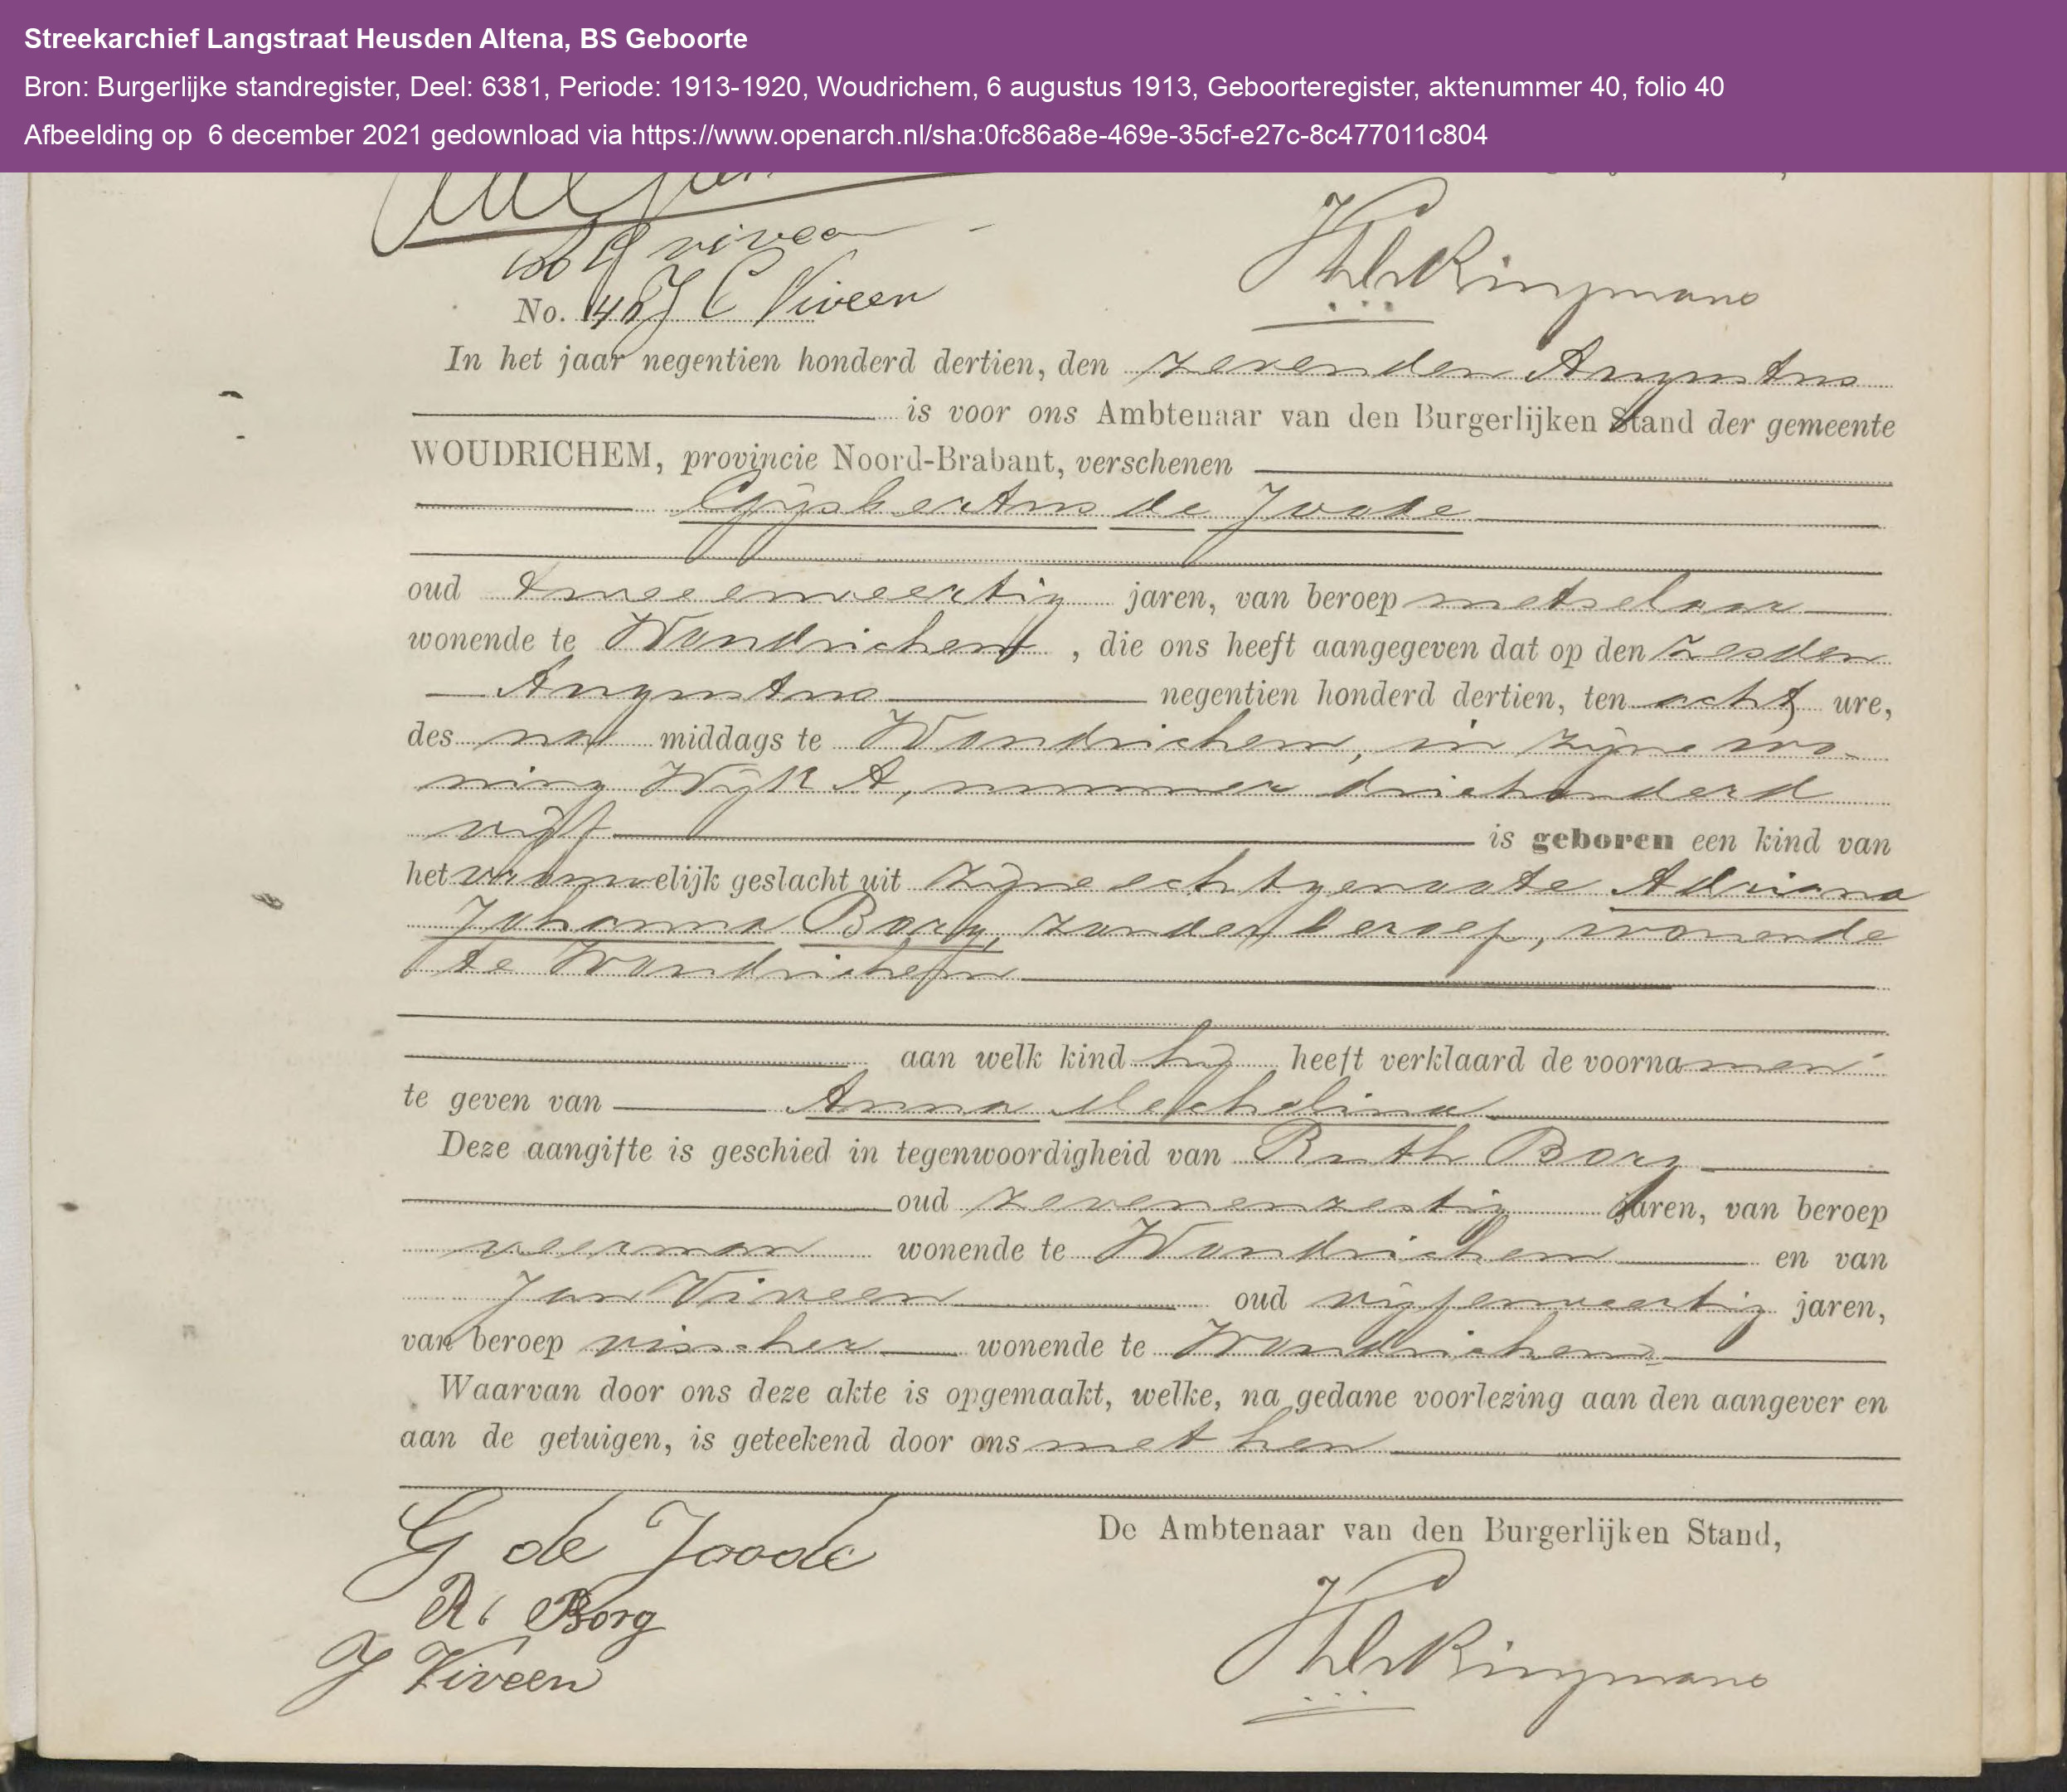 Streekarchief Langstraat Heusden Altena, BS Geboorte
Bron: Burgerlijke standregister, Deel: 6381, Periode: 1913-1920, Woudrichem, 6 augustus 1913, Geboorteregister, aktenummer 40, folio 40
Afbeelding op 6 december 2021 gedownload via https://www.openarch.nl/sha:0fc86a8e-469e-35cf-e27c-8c477011c804
viveen
No. 40 J C Viveen
In het jaar negentien honderd dertien, den zevenden Augustus
is voor ons Ambtenaar van den Burgerlijken Stand der gemeente
WOUDRICHEM, provincie Noord-Brabant, verschenen
Gijsbertus de Joode
oud tweeenveertig jaren, van beroep metselaar
wonende te Woudrichem, die ons heeft aangegeven dat op den zesden
Augustus negentien honderd dertien, ten acht ure,
des na middags te Woudrichem, in zijne wo-
ning Wijk A, nummer driehonderd
vijf is geboren een kind van
het vrouwelijk geslacht uit zijne echtgenoote Adriana
Johanna Borg, zonder beroep, wonende
te Woudrichem
aan welk kind hij heeft verklaard de voornamen
te geven van Anna Mechelina
Deze aangifte is geschied in tegenwoordigheid van Ruth Borg
oud zevenenzestig jaren, van beroep
veerman wonende te Woudrichem en van
Jan Viveen oud vijfenveertig jaren,
van beroep visscher wonende te Woudrichem
Waarvan door ons deze akte is opgemaakt, welke, na gedane voorlezing aan den aangever en
aan de getuigen, is geteekend door ons met hen
G de Joode
De Ambtenaar van den Burgerlijken Stand,
R. Borg
J Viveen